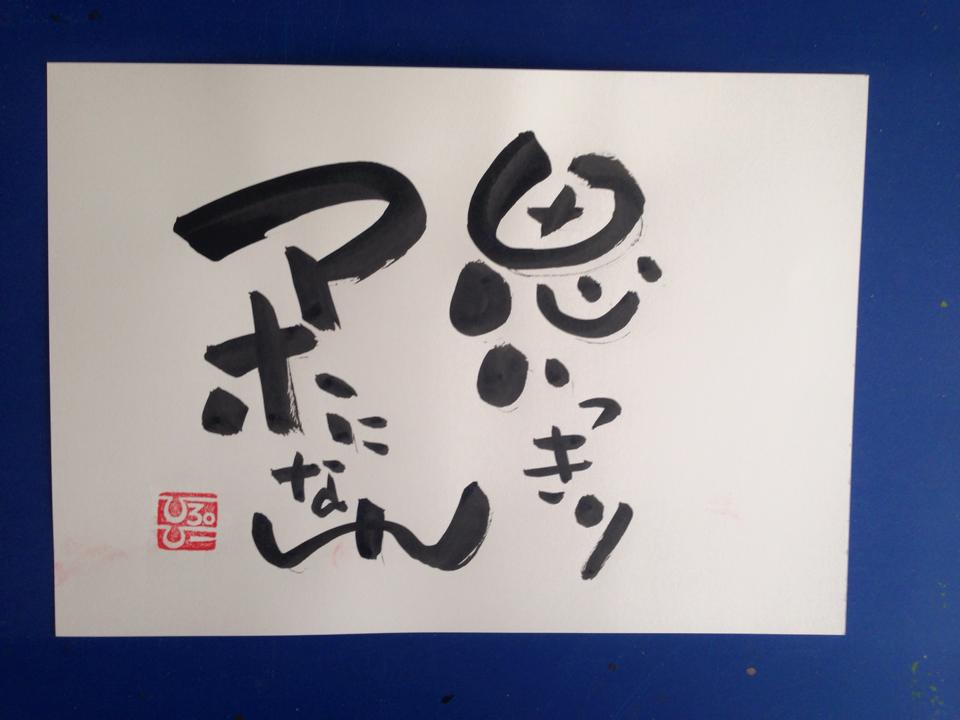 思いっきり
アホになれ